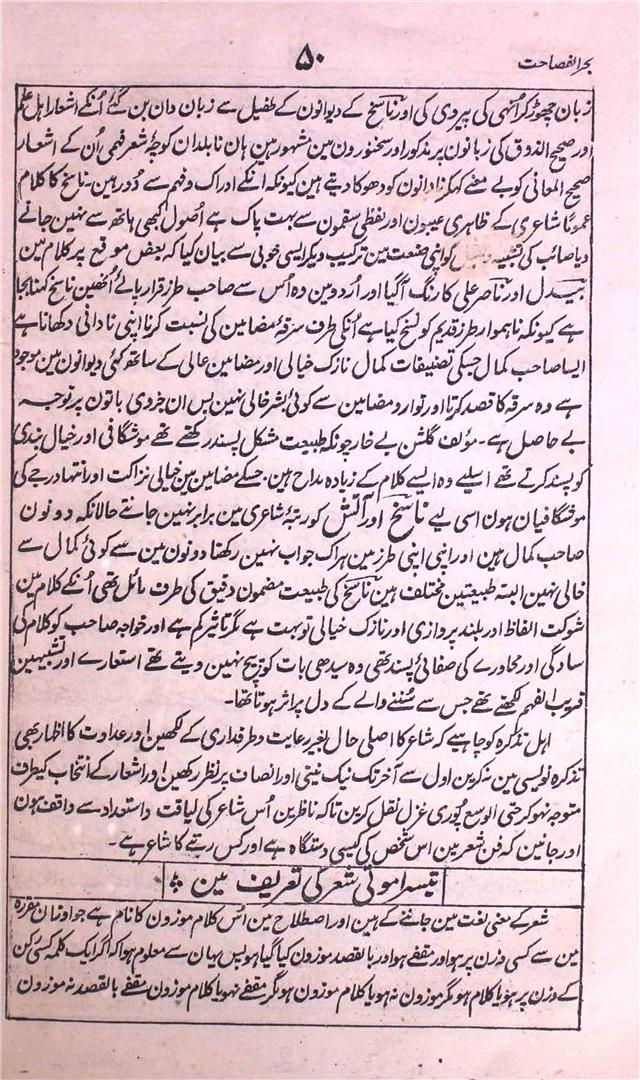 بحر الفصاحت
۵۰
زبان چھوڑ کر اُنہی کی پیروی کی اور ناسخ کے دیوانون کے طفیل سے زبان دان بن گئے اُنکے اشعار اہل علم
اور صحیح الذوق کی زبانون پر مذکور اور سخنورون مین مشہور ہین ہان نابلدان کوچۂ شعر فہمی اُن کے اشعار
صحیح المعانی کو بے معنے کہکر نادانون کو دھوکا دیتے ہین کیونکہ انکے ادراک و فہم سے دُور ہین۔ ناسخ کا کلام
عموماً شاعری کے ظاہری عیبون اور لفظی سقمون سے بہت پاک ہے اُصول کبھی ہاتھ سے نہین جانے
دیا صائب کی تشبیہ کو اپنی صنعت مین ترکیب دیکر ایسی خوبی سے بیان کیا کہ بعض موقع پر کلام مین
بیدل اور ناصر علی کا رنگ آگیا اور اُردو مین وہ اُس سے صاحب طرز قرار پائے اُنھین ناسخ کہنا بجا
ہے کیونکہ ناہموار طرز قدیم کو نسخ کیا ہے اُنکی طرف سرقۂ مضامین کی نسبت کرنا اپنی نادانی دکھانا ہے
ایسا صاحب کمال جسکی تصنیفات کمال نازک خیالی اور مضامین عالی کے ساتھ کئی دیوانون مین موجود
ہے وہ سرقہ کا قصد کرتا اور توارد مضامین سے کوئی بشر خالی نہین پس ان جزوی باتون پر توجہ
بے حاصل ہے۔ مؤلف گلشن بے خار چونکہ طبیعت مشکل پسند رکھتے تھے موشگافی اور خیال بندی
کو پسند کرتے تھے اسلیے وہ ایسے کلام کے زیادہ مداح ہین جسکے مضامین مین خیالی نزاکت اور انتہا درجے کی
موشگافیان ہون اسی لیے ناسخ اور آتش کو رتبۂ شاعری مین برابر نہین جانتے حالانکہ دونون
صاحب کمال ہین اور اپنی اپنی طرز مین ہر اک جواب نہین رکھتا دونون مین سے کوئی کمال سے
خالی نہین البتہ طبیعتین مختلف ہین ناسخ کی طبیعت مضمون دقیق کی طرف مائل تھی اُنکے کلام مین
شوکت الفاظ اور بلند پروازی اور نازک خیالی تو بہت ہے مگر تاثیر کم ہے اور خواجہ صاحب کو کلام کی
سادگی اور محاورے کی صفائی پسند تھی وہ سیدھی بات کو پیچ نہین دیتے تھے استعارے اور تشبیہین
قریب الفہم لکھتے تھے جس سے سُننے والے کے دل پر اثر ہوتا تھا۔
اہل تذکرہ کو چاہیے کہ شاعر کا اصلی حال بغیر رعایت و طرفداری کے لکھین اور عداوت کا اظہار بھی
تذکرہ نویسی مین نہ کرین اول سے آخر تک نیک نیتی اور انصاف پر نظر رکھین اور اشعار کے انتخاب کیطرف
متوجہ نہو کر حتی الوسع پُوری غزل نقل کرین تاکہ ناظرین اُس شاعر کی لیاقت و استعداد سے واقف ہون
اور جانین کہ فن شعر مین اس شخص کی کیسی دستگاہ ہے اور کس رتبے کا شاعر ہے۔
تیسرا موتی شعر کی تعریف مین
شعر کے معنی لغت مین جاننے کے ہین اور اصطلاح مین اُس کلام موزون کا نام ہے جو اوزان مقررہ
مین سے کسی وزن پر ہو اور مقفے ہو اور بالقصد موزون کیا گیا ہو پس بیان سے معلوم ہوا کہ اگر ایک کلمہ کسی رکن
کے وزن پر ہو یا کلام ہو مگر موزون نہ ہو یا کلام موزون ہو مگر مقفے نہو یا کلام موزون مقفے بالقصد نہ موزون